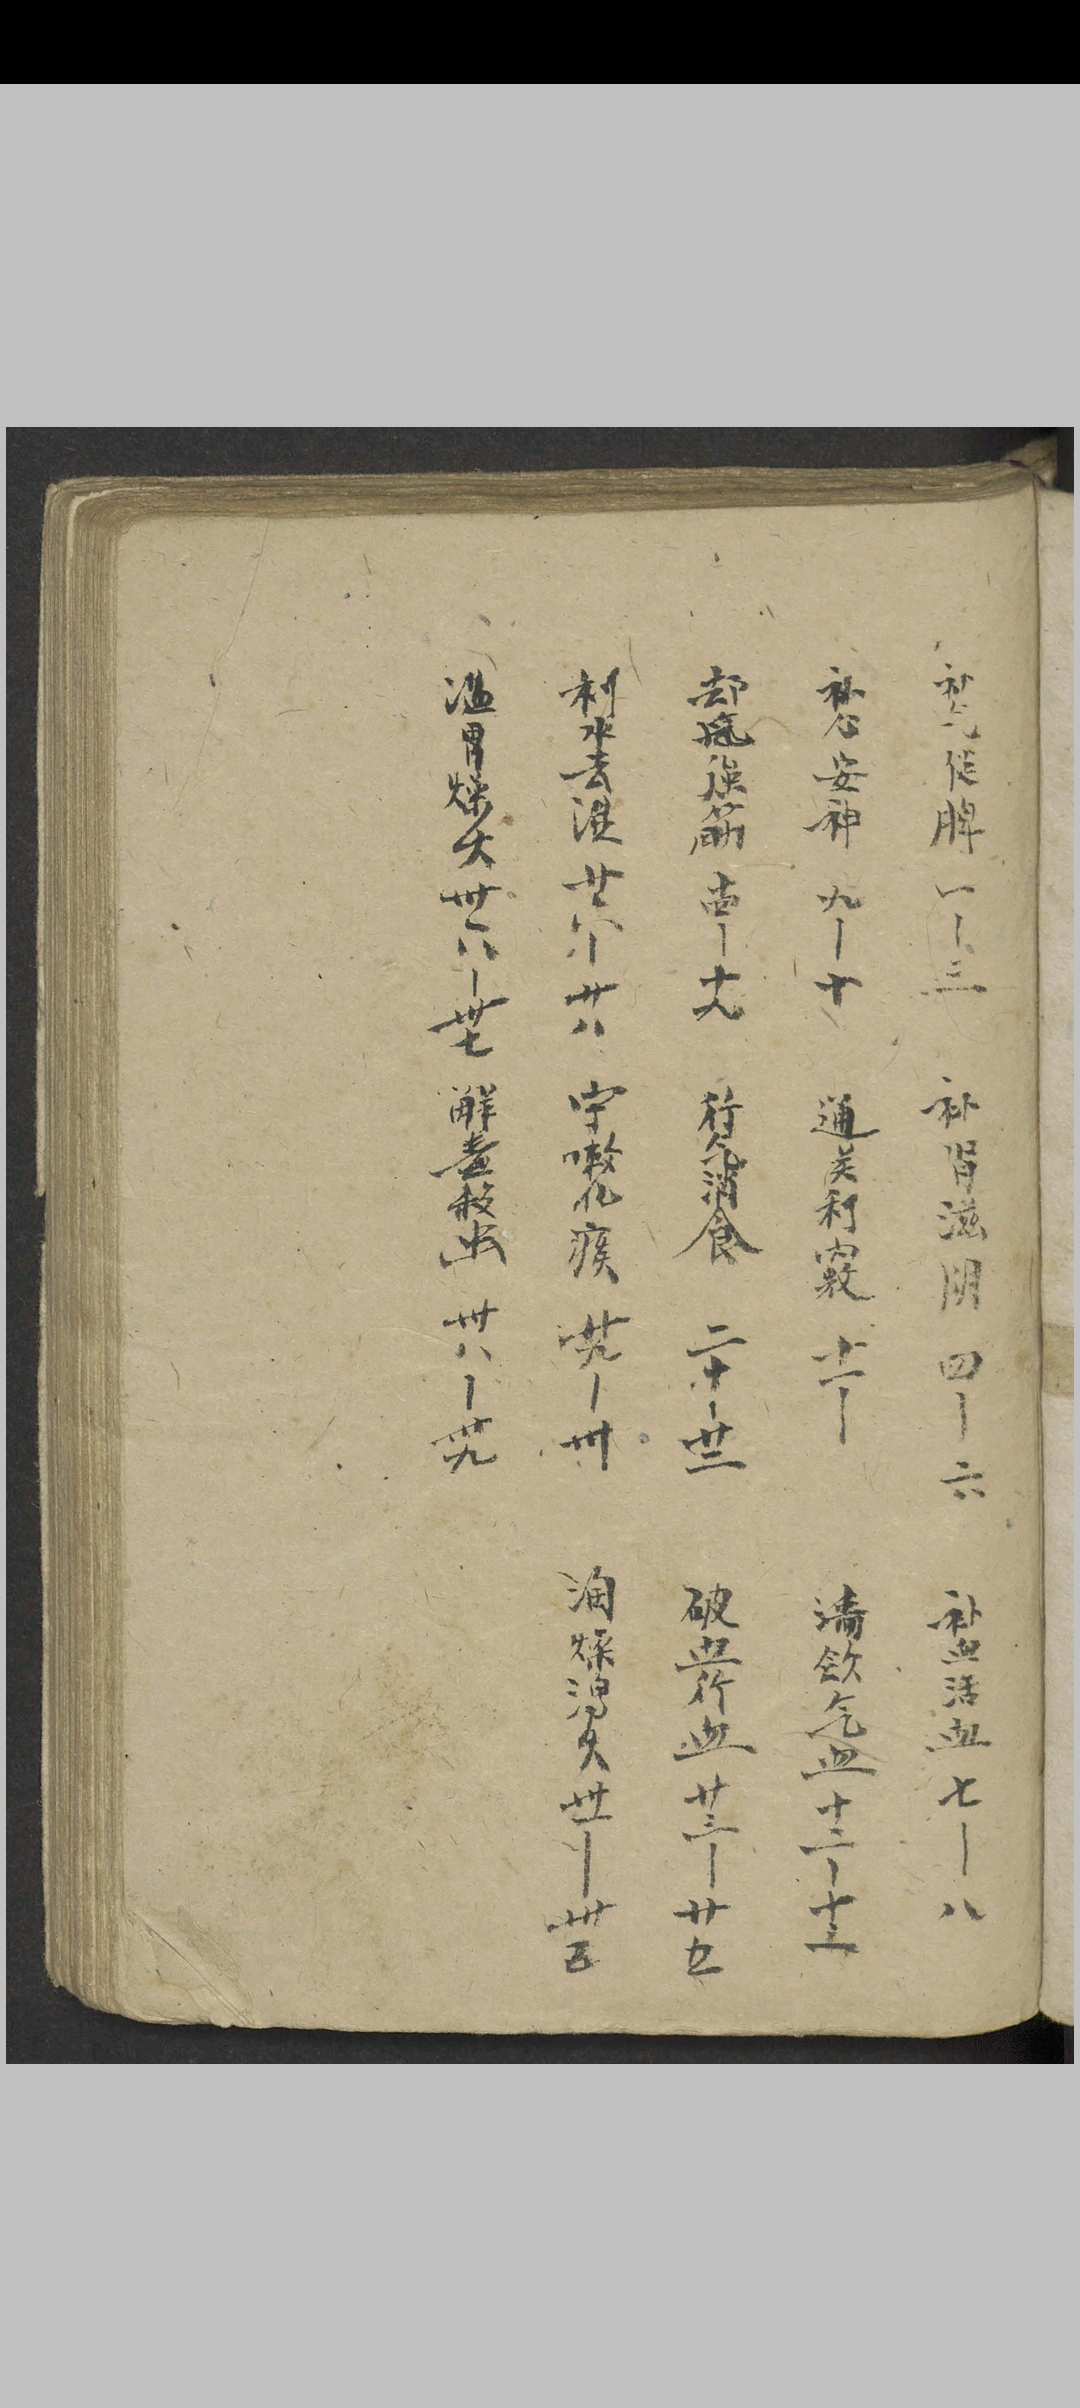 补气健脾 一 | 三 补肾滋阴 四 | 六 补血活血 七 | 八
补心安神 九 | 十 通关利窍 十一 | 清敛气血 十二 | 十三
却风强筋 十四 | 十九 行气消食 二十 | 廿二 破血行血 廿三 | 廿五
利水去湿 廿六 | 廿八 宁嗽化痰 廿九 | 卅 润燥泻火 卅一 | 卅五
温胃燥 卅六 | 卅七 解毒殺虫 卅八 | 卅九